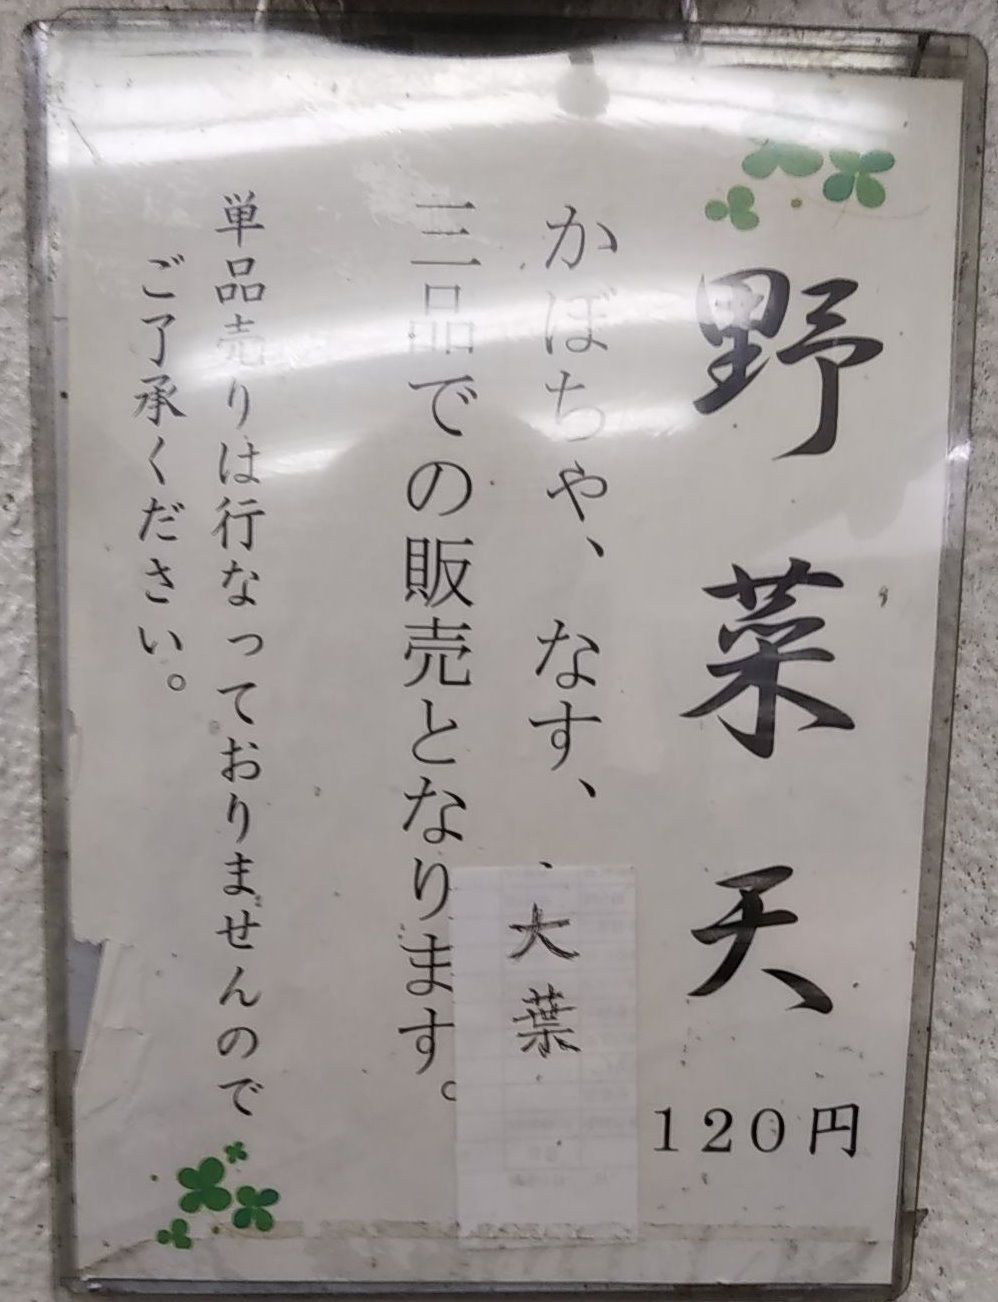 野菜天
120円
かぼちゃ、なす、大葉
三品での販売となります。
単品売りは行なっておりませんので
ご了承ください。